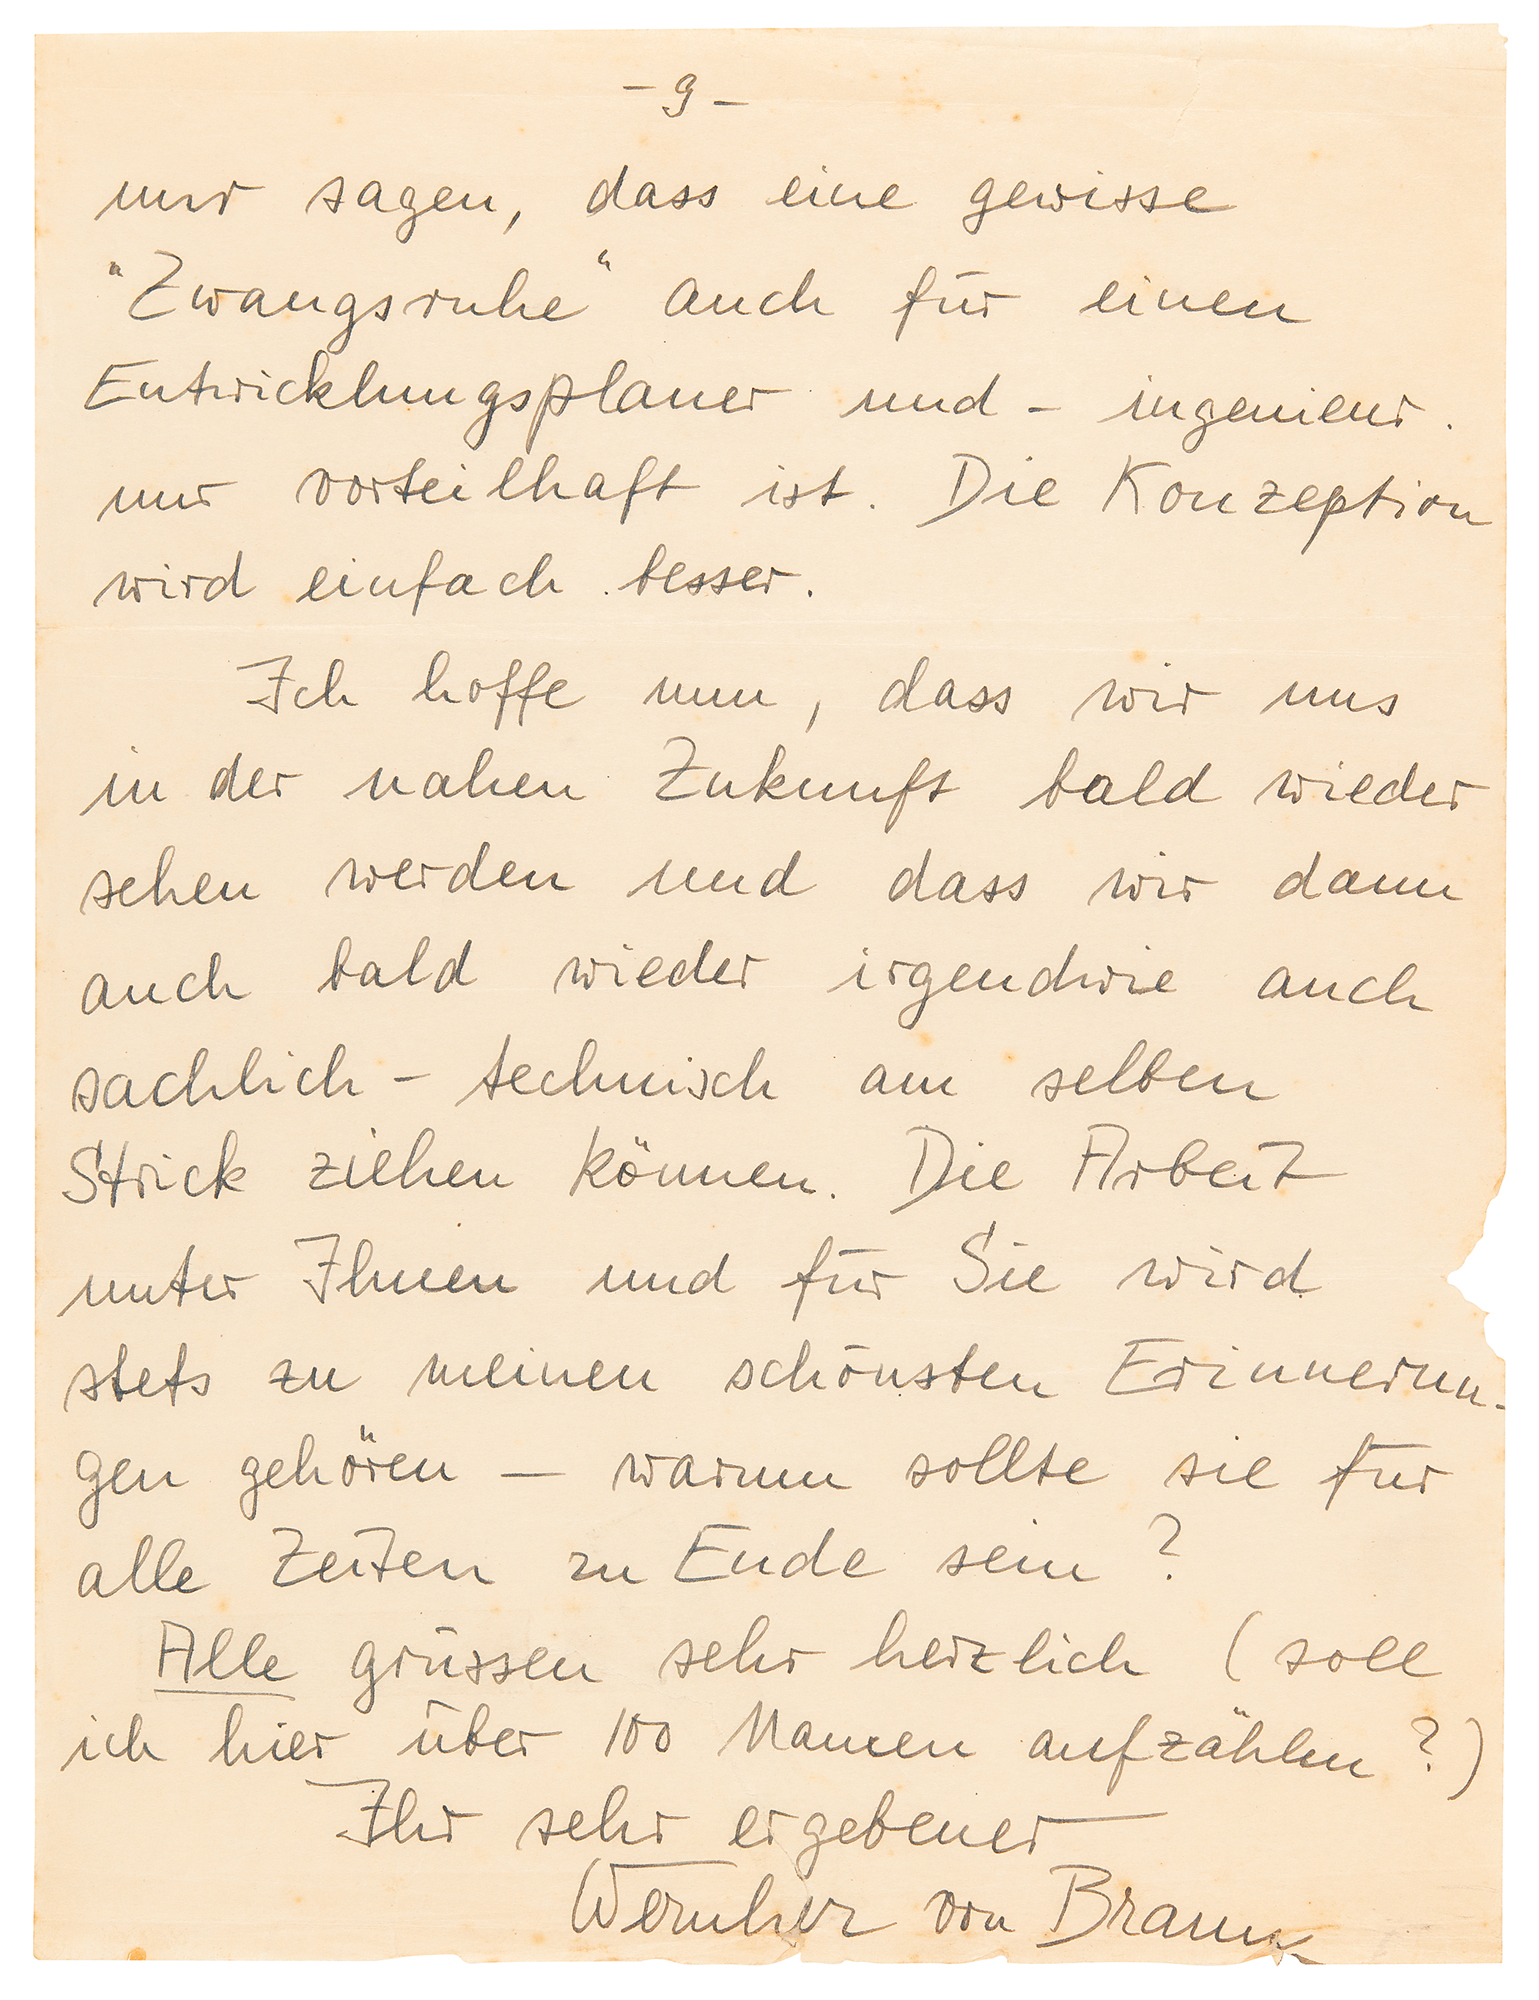 - 9 -
nur sagen, dass eine gewisse
"Zwangsruhe" auch für einen
Entwicklungsplaner und - ingenieur
nur vorteilhaft ist. Die Konzeption
wird einfach besser.
Ich hoffe nun, dass wir uns
in der nahen Zukunft bald wieder
sehen werden und dass wir dann
auch bald wieder irgendwie auch
sachlich - technisch am selben
Strick ziehen können. Die Arbeit
unter Ihnen und für Sie wird
stets zu meinen schönsten Erinnerun-
gen gehören — warum sollte sie für
alle Zeiten zu Ende sein?
Alle grüssen sehr herzlich (soll
ich hier über 100 Namen aufzählen?)
Ihr sehr ergebener
Wernher von Braun